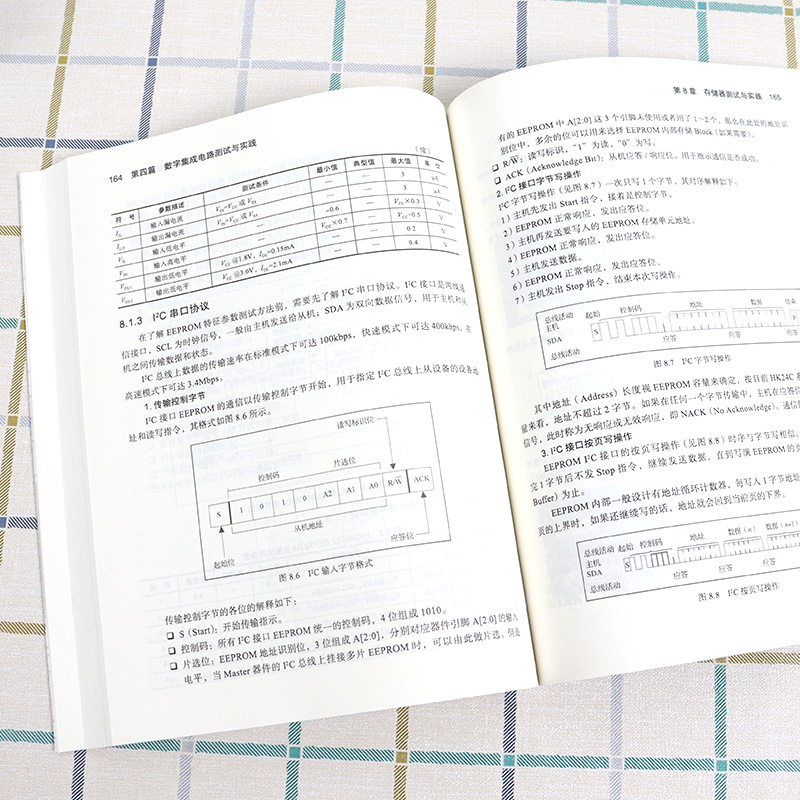 164 第四篇 数字集成电路测试与实践
（续）
符 号 参数描述 测试条件 最小值 典型值 最大值 单 位
输入漏电流 VIN=VCC 或 VSS — — 3 μA
ILO 输出漏电流 VIN=VCC 或 VSS — — 3 μA
VIL 输入低电平 — -0.6 — VCC×0.3 V
VIH 输入高电平 — VCC×0.7 — VCC+0.5 V
VOL1 输出低电平 VCC @1.8V，IOL=0.15mA — — 0.2 V
VOL2 输出低电平 VCC @3.0V，IOL=2.1mA — — 0.4 V
8.1.3 I²C 串口协议
在了解 EEPROM 特征参数测试方法前，需要先了解 I²C 串口协议。I²C 接口是两线通
信接口，SCL 为时钟信号，一般由主机发送给从机；SDA 为双向数据信号，用于主机和从
机之间传输数据和状态。
I²C 总线上数据的传输速率在标准模式下可达 100kbps，快速模式下可达 400kbps，在
高速模式下可达 3.4Mbps。
1. 传输控制字节
I²C 接口 EEPROM 的通信以传输控制字节开始，用于指定 I²C 总线上从设备的设备地
址和读写指令，其格式如图 8.6 所示。
读写标识位
控制码 片选位
S 1 0 1 0 A2 A1 A0 R/W̅ ACK
从机地址
起始位 应答位
图 8.6 I²C 输入字节格式
传输控制字节的各位的解释如下：
❑ S（Start）：开始传输指示。
❑ 控制码：所有 I²C 接口 EEPROM 统一的控制码，4 位组成 1010。
❑ 片选位：EEPROM 地址识别位，3 位组成 A[2:0]，分别对应器件引脚 A[2:0] 的输入
电平，当 Master 器件的 I²C 总线上挂接多片 EEPROM 时，可以由此做片选。但是
第 8 章 存储器测试与实践 165
有的 EEPROM 中 A[2:0] 这 3 个引脚未使用或者用了 1~2 个，那么在此处的地址识
别位中，多余的位可以用来选择 EEPROM 内部存储 Block（如果需要）。
❑ R/W̅：读写标识，“1” 为读，“0” 为写。
❑ ACK（Acknowledge Bit）：从机应答 / 响应位，用于指示通信是否成功。
2. I²C 接口字节写操作
I²C 字节写操作（见图 8.7）一次只写 1 个字节，其时序解释如下：
1）主机先发出 Start 指令，接着是控制字节。
2）EEPROM 正常响应，发出应答位。
3）主机再发送要写入的 EEPROM 存储单元地址。
4）EEPROM 正常响应，发出应答位。
5）主机发送数据。
6）EEPROM 正常响应，发出应答位。
7）主机发出 Stop 指令，结束本次写操作。
总线活动 起始 控制码 地址 数据 结束
主机
SDA S
总线活动 应答 应答 应答
图 8.7 I²C 字节写操作
其中地址（Address）长度视 EEPROM 容量来确定，按目前 HK24C
量来看，地址不超过 2 字节。如果在任何一个字节传输中，主机在应答位
信号，此时称为无响应或无效响应，即 NACK（No Acknowledge），通信
3. I²C 接口按页写操作
EEPROM I²C 接口的按页写操作（见图 8.8）时序与字节写相似，
完 1 字节后不发 Stop 指令，继续发送数据，直到写满 EEPROM 的
Buffer）为止。
EEPROM 内部一般设计有地址循环计数器，每写入 1 字节地址
页的上界时，如果还继续写的话，地址就会回到当前页的下界。
总线活动 起始 控制码 地址 数据（n） 数据（n+1）
主机
SDA
总线活动 应答 应答 应答
图 8.8 I²C 按页写操作